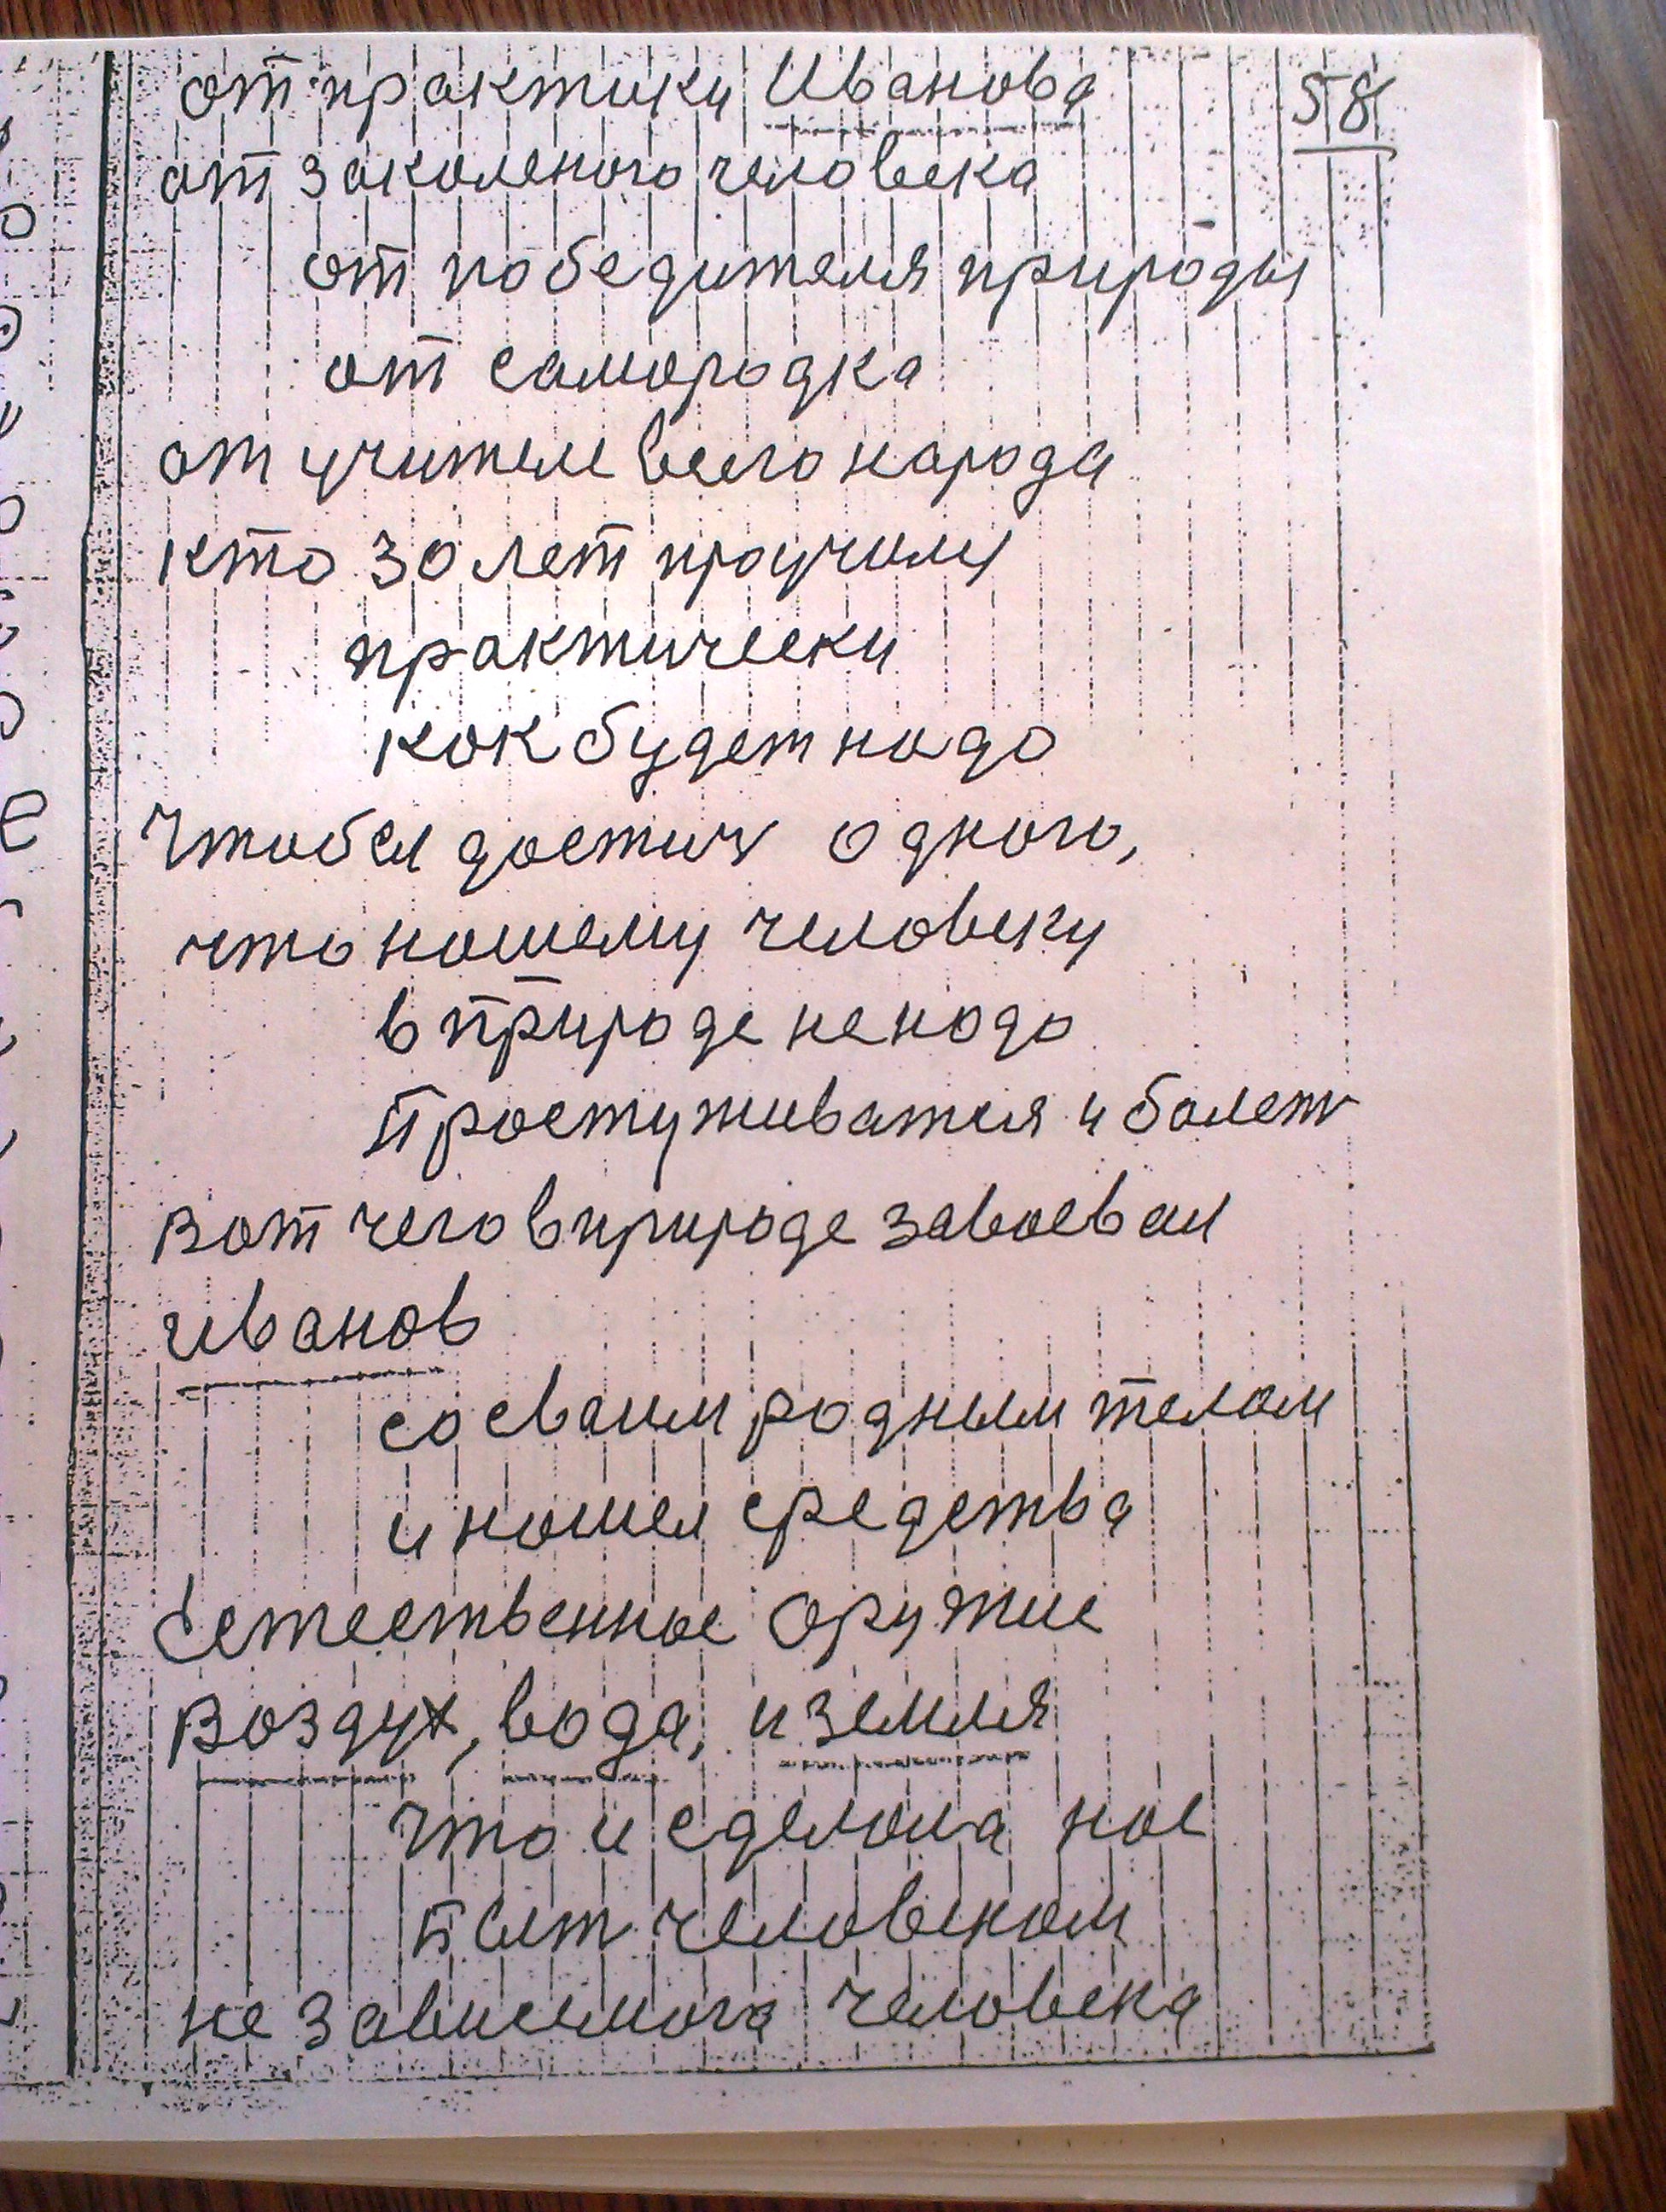 от практики Иванова
58
от заколеного человека
от победителя природы
от самородка
от учителе всего народа
кто 30 лет проучился
практически
как будет надо
Чтобы достич одного,
что нашему человеку
в природе ненадо
Простуживатся и болеть
Вот чего в природе завоевал
Иванов
со своим родным телом
и нашел средства
Естественное оружие
Воздух, вода, и земля
Что и сделала нас
человеком
не зависемога человека